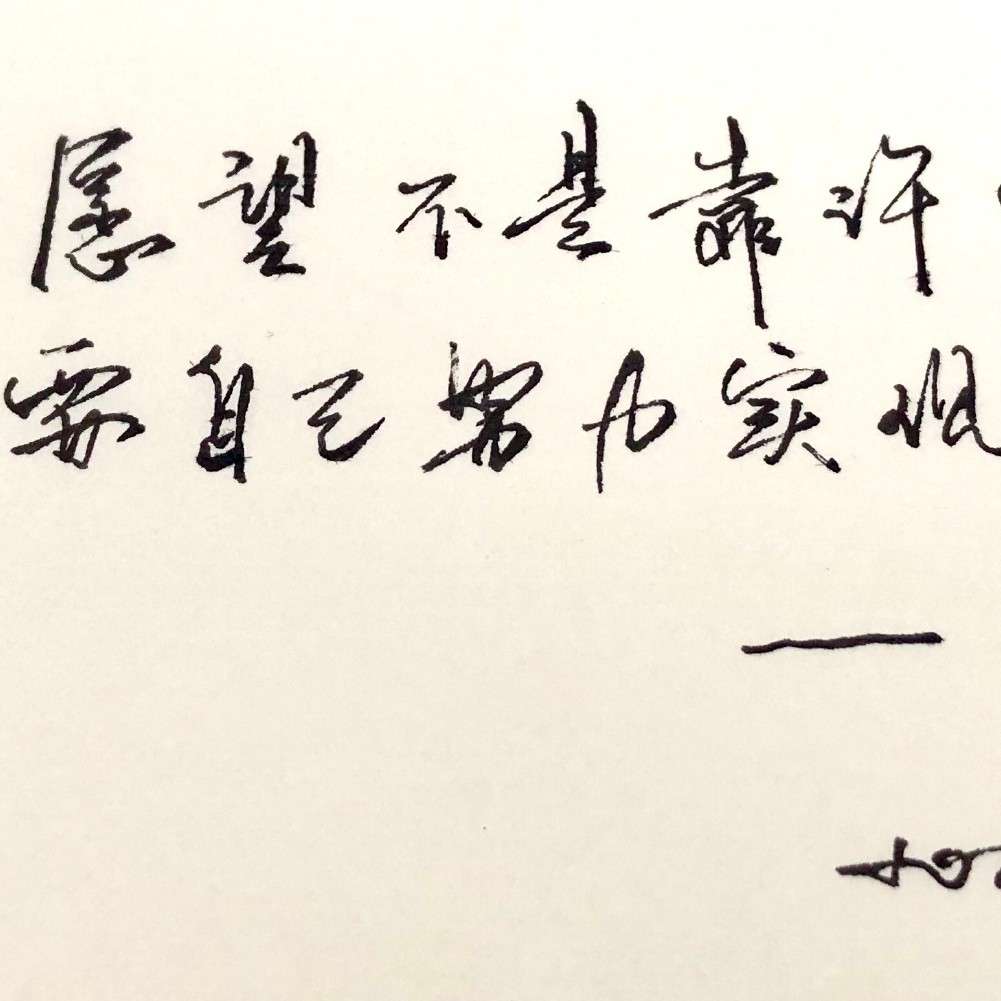 愿望不是靠许
需自己努力实现
——